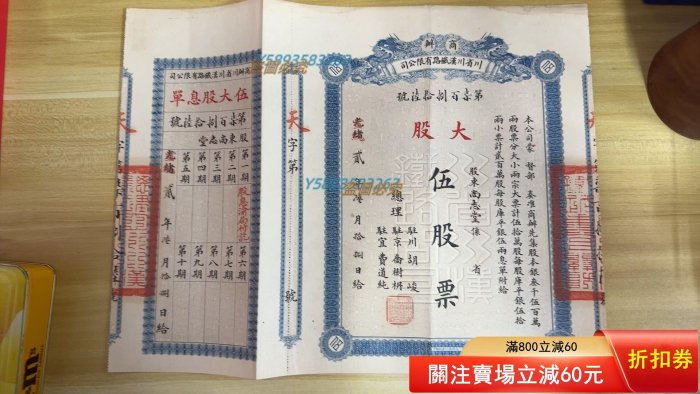 商辦
川省川漢鐵路有限公司
第柒百捌拾陸號
大股
伍股票
本公司蒙
督部
奏准商辦先集股本銀叁千伍百萬
兩股票分大小兩宗大票計伍拾萬股每股庫平銀伍拾
兩小票計貳百萬股每股庫平銀伍兩息單附給
股東尚志堂係
省
總理
駐川胡峻
駐京喬樹枏
駐宜費道純
光緒貳
年
月拾捌日給
天字第
號
商辦川省川漢鐵路有限公司
伍大股息單
第柒百捌拾陸號
股東尚志堂
第一期
第二期
第三期
第四期
第五期
第六期
第七期
第八期
第九期
第十期
光緒貳
年
月拾捌日給
滿800立減60
關注賣場立減60元
折扣券